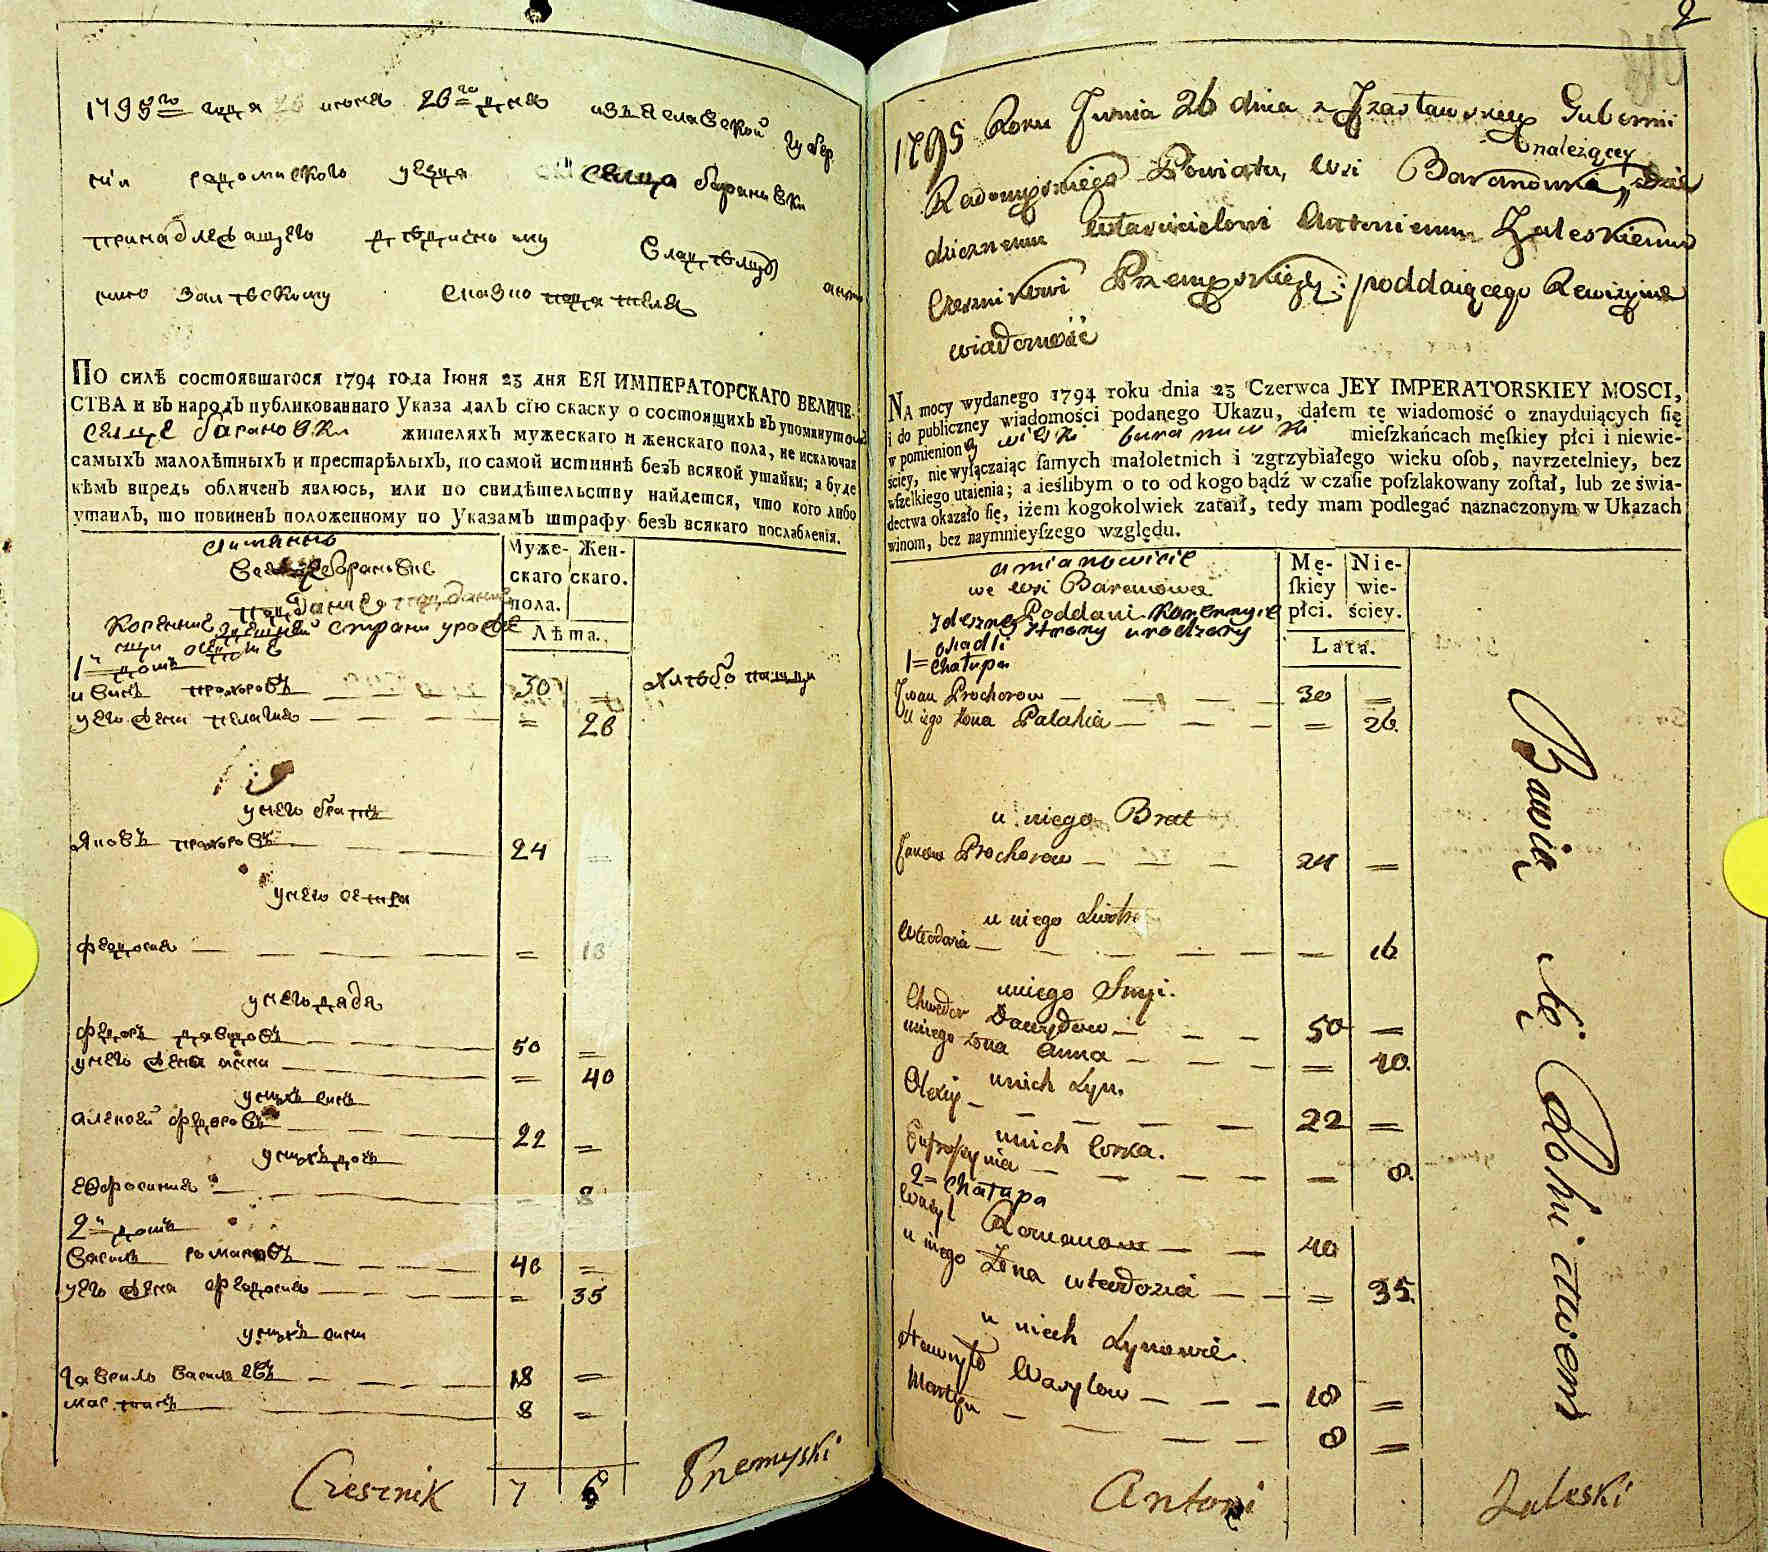 1795го года июня 26го дня изъяславской губер
нїи радомиского уезда селца барановки
принадлежащего дедичному владелцу анто
нию залескому сказка поданная
По силѣ состоявшагося 1794 года Іюня 23 дня ЕЯ ИМПЕРАТОРСКАГО ВЕЛИЧЕ-
СТВА и въ народъ публикованнаго Указа далъ сїю скаску о состоящихъ въ упомянутомъ
селце барановки жителяхъ мужескаго и женскаго пола, не исключая
самыхъ малолѣтныхъ и престарѣлыхъ, по самой истиннѣ безъ всякой утайки; а буде
кѣмъ впредь обличенъ явлюсь, или по свидѣтельству найдется, что кого либо
утаилъ, то повиненъ положенному по Указамъ штрафу безъ всякаго послабленїя.
а имянно
барановке
Коренние здешней страни
Муже-
скаго
пола.
Жен-
скаго.
Лѣта.
1й домъ
иванъ прохоровъ 30 =
у его жена пелагия = 26
хлебо пашци
у него братъ
яковъ прохоровъ 24 =
у него сестра
федосия = 16
у него дядя
федоръ давидовъ 50 =
у него жена анна = 40
у нихъ синъ
алексей федоровъ 22 =
у нихъ дочь
евфросиния = 8
2й домъ
василь романовъ 40 =
у его жена федосия = 35
у нихъ сини
гаврило василевъ 18 =
мартинъ 8 =
7 6
Czesznik Przemyski
2
1795 Roku Junia 26 dnia z Izasławskiey Gubernii
należącey
Radomyskiego Powiatu, wsi Baranowka, dzie
dzicznemu Własicielowi Antoniemu Zaleskiemu
Czesnikowi Przemyskiey poddaiącego Rewizyina
wiadomość
NA mocy wydanego 1794 roku dnia 23 Czerwca JEY IMPERATORSKIEY MOSCI,
i do publiczney wiadomości podanego Ukazu, dałem tę wiadomość o znayduiących ſię
w pomienioney wieski baranuwki mieſzkańcach męſkiey płci i niewie-
ściey, nie wyłączaiąc ſamych małoletnich i zgrzybiałego wieku oſob, nayrzetelniey, bez
wſzelkiego utaienia; a ieślibym o to od kogo bądź w czaſie poſzlakowany zoſtał, lub ze świa-
dectwa okazało ſię, iżem kogokolwiek zataił, tedy mam podlegać naznaczonym w Ukazach
winom, bez naymnieyſzego względu.
a mianowicie
we wsi Baranowce
Poddani Korennyie
zdeszney strony urodzony
osadli
Mę-
ſkiey
płci.
Nie-
wie-
ściey.
Lata.
1= Chałupa
Iwan Prochorow 30 =
U iego żona Palahia = 26.
u niego Brat
Jakow Prochorow 24 =
u niego Siostra
Wteodozia = 16
u niego Stryi.
Chwedor Dawydow 50 =
u niego żona Anna = 40.
u nich Syn.
Olexiy 22 =
u nich Corka.
Eufrosynia = 8.
2= Chałupa
Wasyl Romanow 40
u niego Żona wteodozia = 35.
u nich Synowie.
Hawryło Wasylow 18 =
Martyn 8 =
Bawią się Rolnictwem
Antoni Zaleski